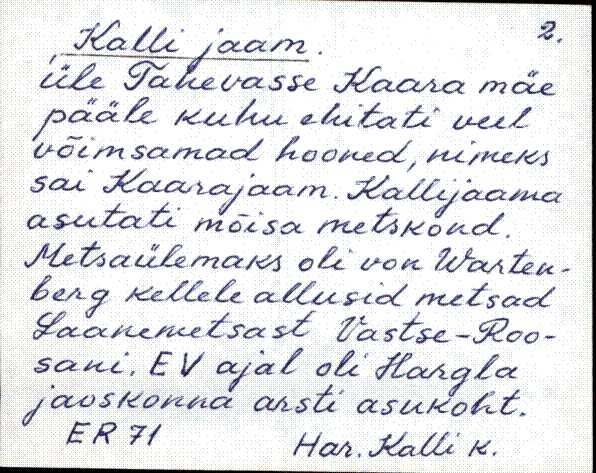 2.
Kalli jaam.
üle Tahevasse Kaara mäe
pääle kuhu ehitati veel
võimsamad hooned, nimeks
sai Kaarajaam. Kallijaama
asutati mõisa metskond.
Metsaülemaks oli von Warten-
berg kellele allusid metsad
Laanemetsast Vastse-Roo-
sani. EV ajal oli Hargla
jaoskonna arsti asukoht.
ER 71
Har. Kalli k.